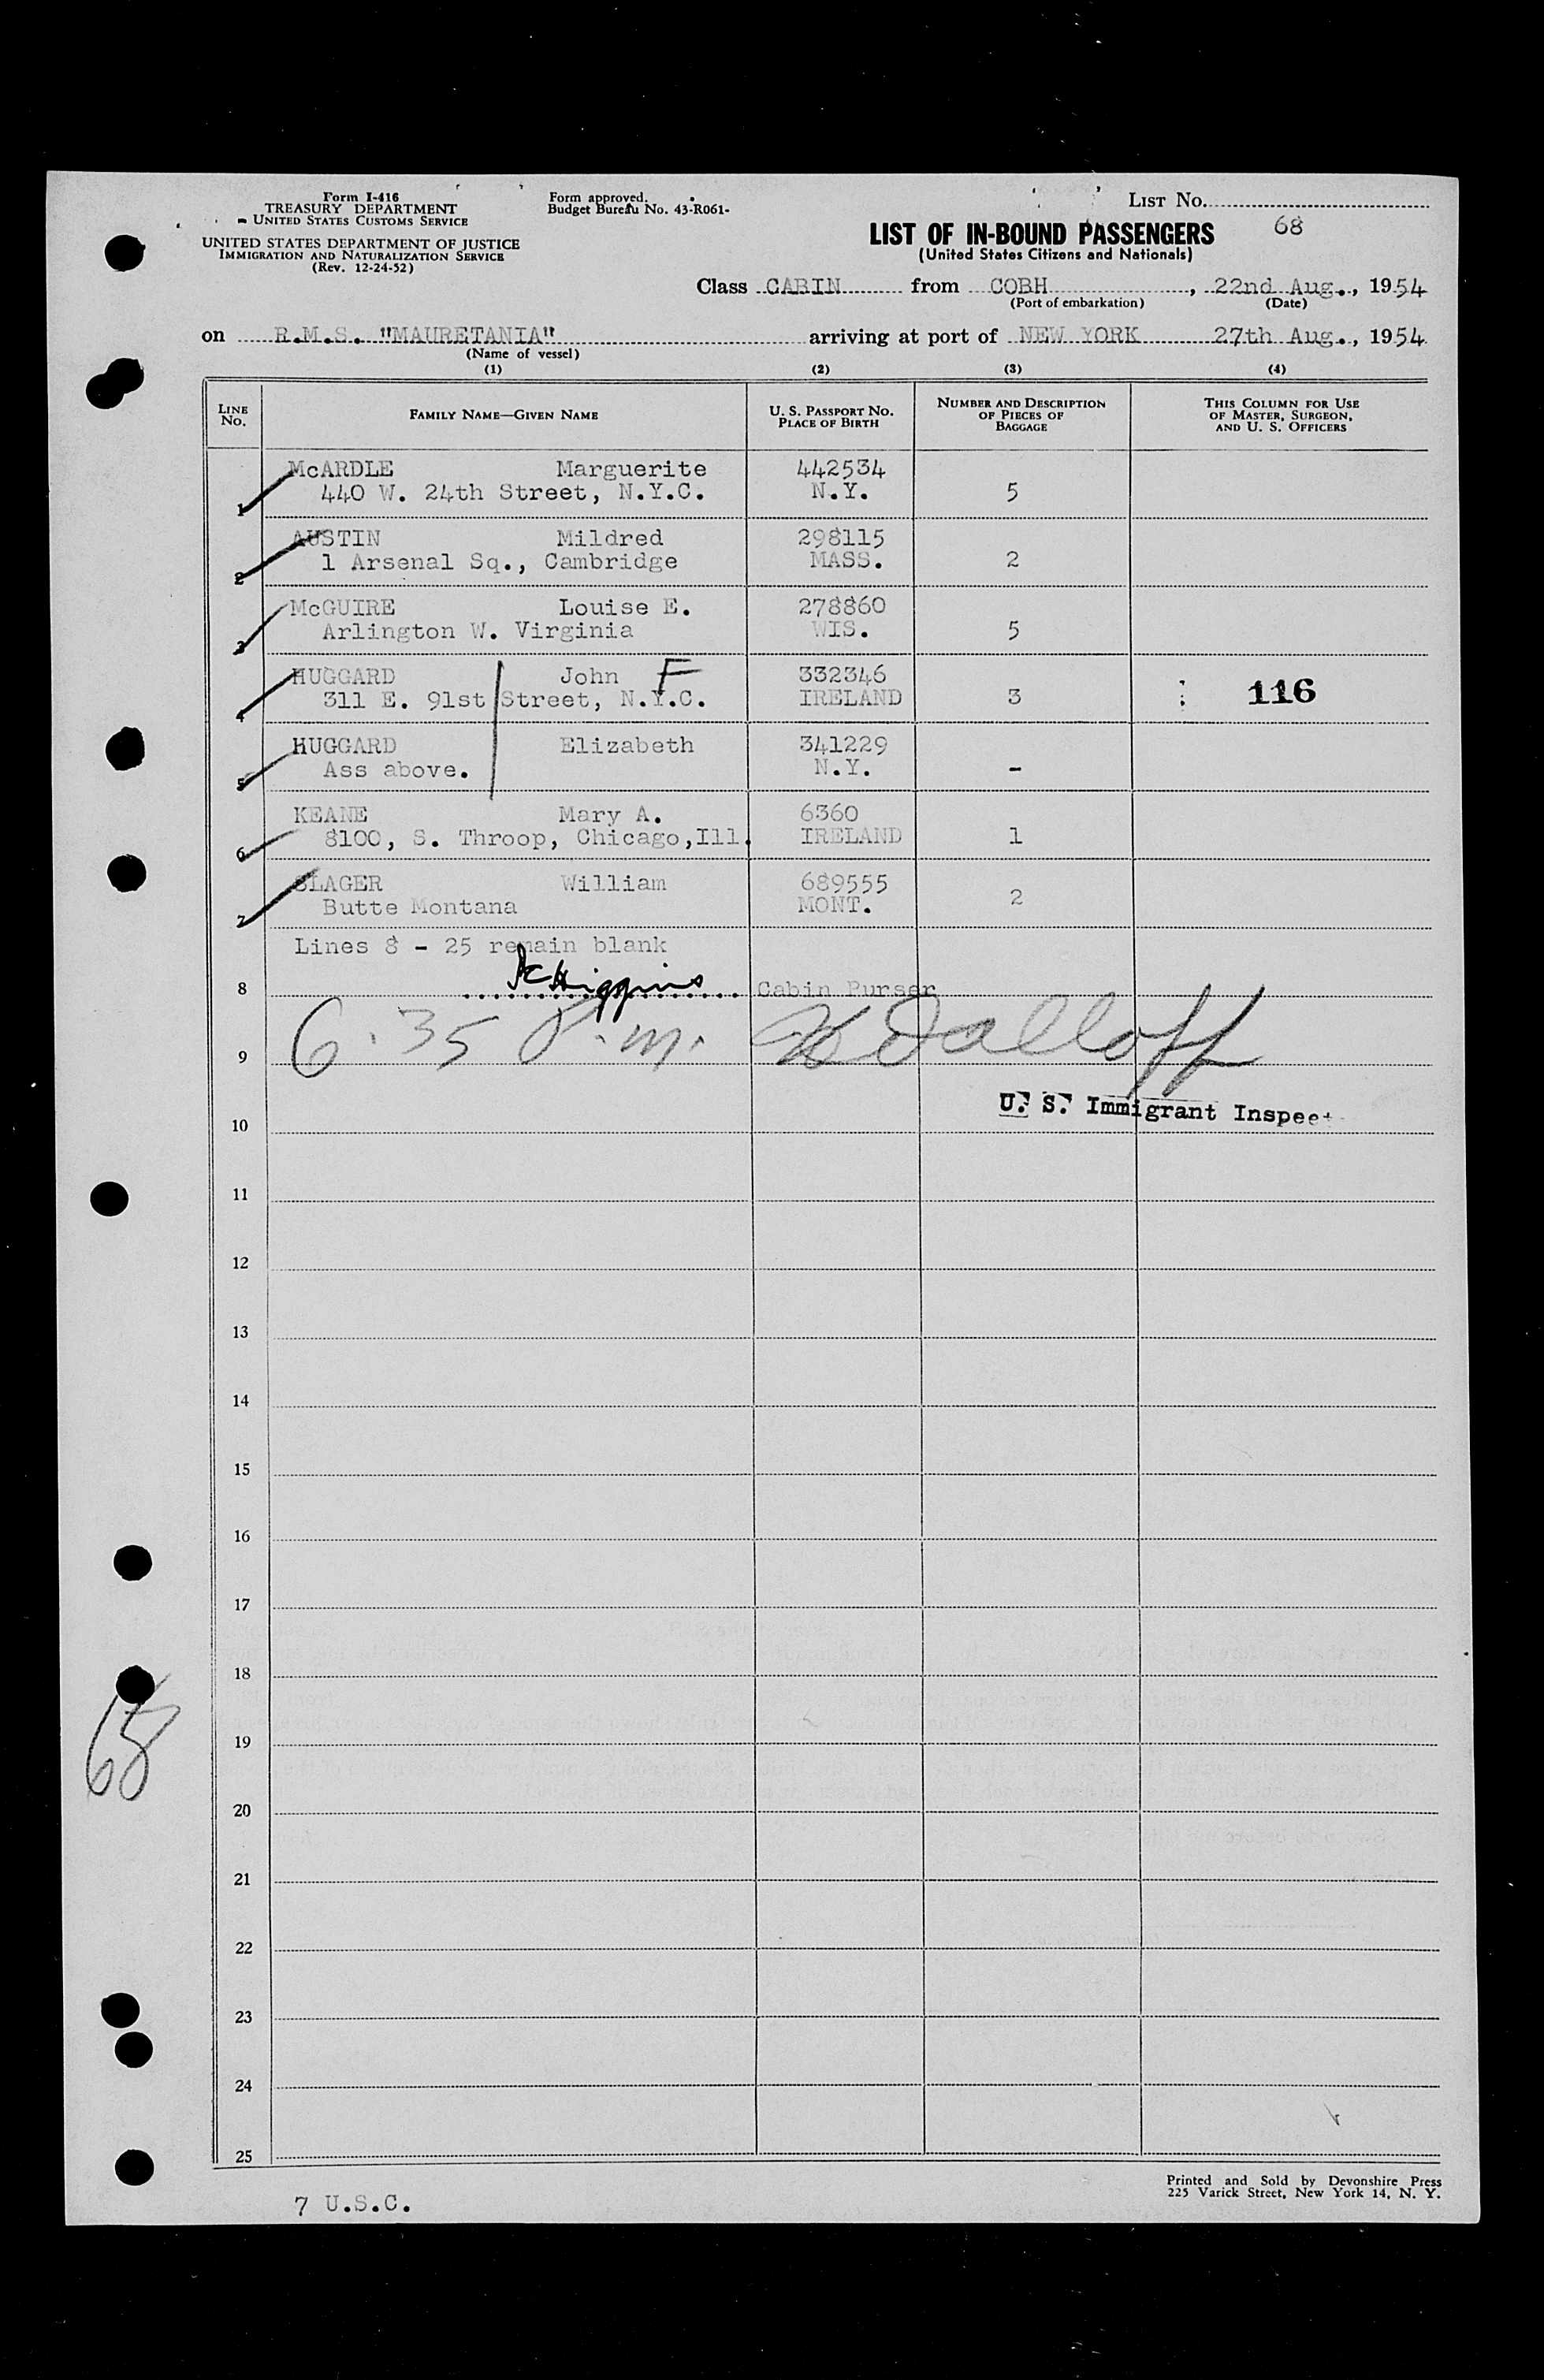 Form I-416
TREASURY DEPARTMENT
UNITED STATES CUSTOMS SERVICE
UNITED STATES DEPARTMENT OF JUSTICE
IMMIGRATION AND NATURALIZATION SERVICE
(Rev. 12-24-52)
Form approved.
Budget Bureau No. 43-R061-
LIST NO.
68
LIST OF IN-BOUND PASSENGERS
(United States Citizens and Nationals)
Class CABIN from COBH, 22nd Aug., 1954
(Port of embarkation) (Date)
on R.M.S. "MAURETANIA" arriving at port of NEW YORK 27th Aug., 1954
(Name of vessel)
(1) (2) (3) (4)
LINE NO. FAMILY NAME—GIVEN NAME U. S. PASSPORT NO. PLACE OF BIRTH NUMBER AND DESCRIPTION OF PIECES OF BAGGAGE THIS COLUMN FOR USE OF MASTER, SURGEON, AND U. S. OFFICERS
McARDLE Marguerite 442534
1 440 W. 24th Street, N.Y.C. N.Y. 5
AUSTIN Mildred 298115
2 1 Arsenal Sq., Cambridge MASS. 2
McGUIRE Louise E. 278860
3 Arlington W. Virginia WIS. 5
HUGGARD John F 332346
4 311 E. 91st Street, N.Y.C. IRELAND 3 116
HUGGARD Elizabeth 341229
5 Ass above. N.Y. -
KEANE Mary A. 6360
6 8100, S. Throop, Chicago,Ill. IRELAND 1
SLAGER William 689555
7 Butte Montana MONT. 2
Lines 8 - 25 remain blank
8 Higgins Cabin Purser
9 6.35 P.m. Dalloff
10 U. S. Immigrant Inspect
11
12
13
14
15
16
17
18
68
19
20
21
22
23
24
25
7 U.S.C.
Printed and Sold by Devonshire Press
225 Varick Street, New York 14, N. Y.